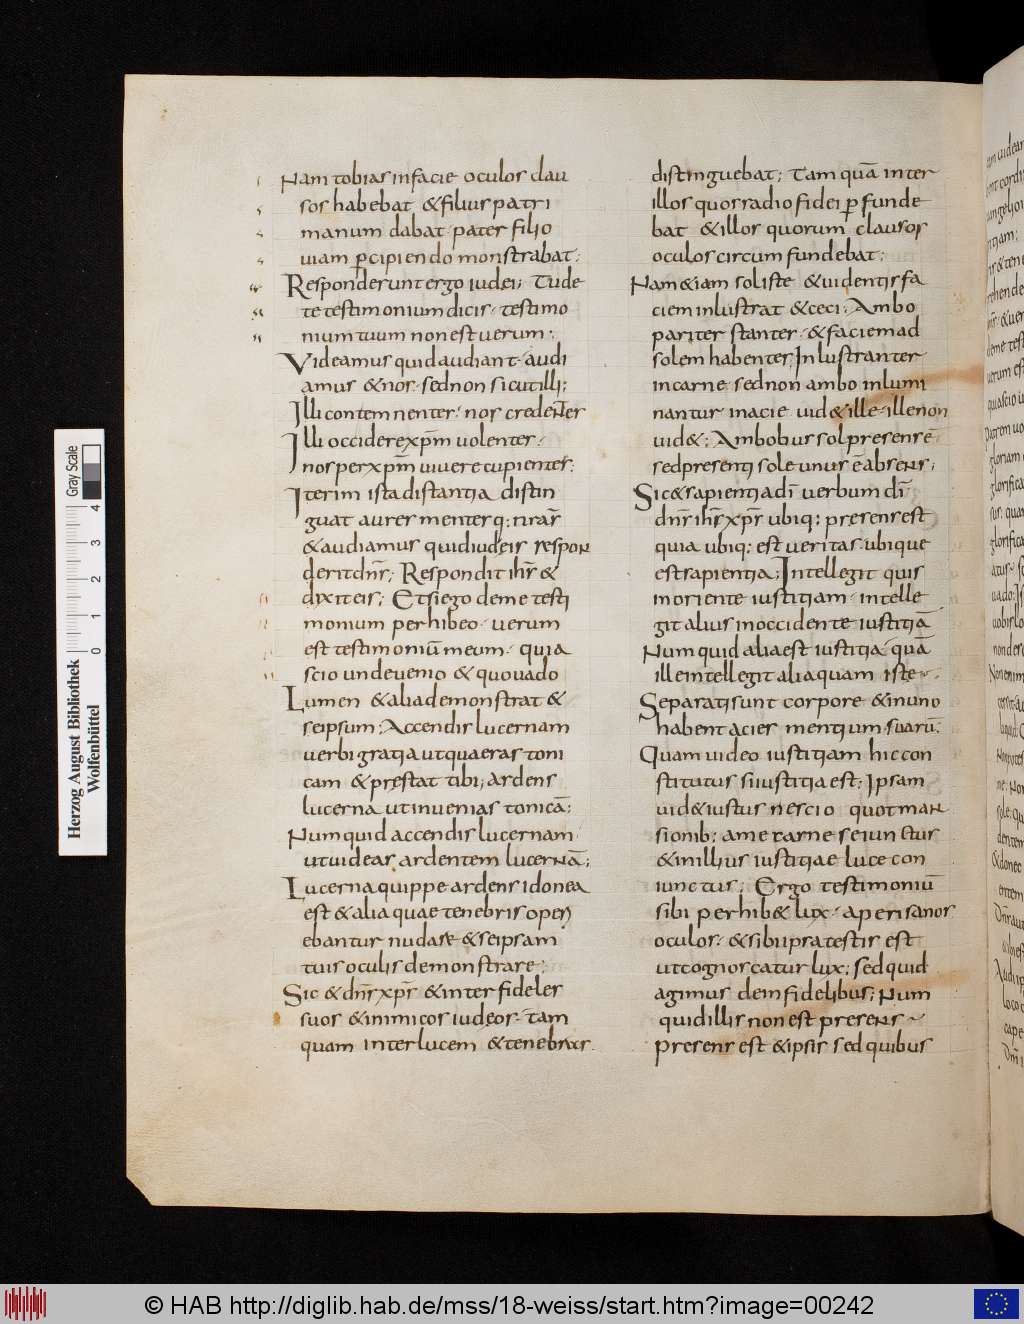 Nam tobias infacie oculos clau
sos habebat &filius patri
manum dabat pater filio
uiam p̄cipiendo monstrabat;
Responderunt ergo iudei; Tude
te testimonium dicis· testimo
nium tuum non est uerum;
Videamus quid audiant· audi
amus &nos· sed non sicut illi;
Illi contemnentes· nos credentes
Illi occidere xpm̄ uolentes·
nos per xpm̄ uiuere cupientes;
Iterim ista distantia distin
guat aures mentesq; nr̄as
&audiamus quid iudeis respon
derit dn̄s; Respondit ihs̄ &
dixit eis; Et si ego de me testi
monium perhibeo· uerum
est testimoniū meum· quia
scio unde uenio & quo uado
Lumen & alia demonstrat &
seipsum; Accendis lucernam
uerbi gratia ut quaeras toni
cam & prestat tibi; ardens
lucerna ut inuenias tonicā;
Numquid accendis lucernam
ut uideas ardentem lucernā;
Lucerna quippe ardens idonea
est & alia quae tenebris operi
ebantur nudare & seipsam
tuis oculis demonstrare;
Sic & dn̄s xp̄s &inter fideles
suos &inimicos iudęos· tam
quam inter lucem &tenebras
distinguebat; Tam quā inter
illos quos radio fidei p̄funde
bat &illos quorum clausos
oculos circumfundebat;
Nam &iam sol iste &uidentis fa
ciem inlustrat &ceci; Ambo
pariter stantes· &faciem ad
solem habentes; Inlustrantur
in carne sed non ambo inlumi
nantur in acie uid& ille· ille non
uid&; Ambobus sol presens ē
sed presenti sole unus ē absens;
Sic &sapientia dī uerbum dī·
dn̄s ihs̄ xp̄s ubiq; presens est
quia ubiq; est ueritas ubique
est sapientia; Intellegit quis
in oriente iustitiam· intelle
git alius in occidente iustitiā
Numquid alia est iustitia quā
ille intellegit alia quam iste
Separati sunt corpore &in uno
habent acies mentium suarū;
Quam uideo iustitiam hic con
stitutus si iustitia est; Ipsam
uid& iustus nescio quot man
sionib; a me carne seiunctus
&in illius iustitiae luce con
iunctus; Ergo testimoniū
sibi perhib& lux· aperi sanos
oculos· &sibi ipsa testis est
ut cognoscatur lux; sed quid
agimus de infidelibus; Num
quid illis non est presens
presens est &ipsis sed quibus
Herzog August Bibliothek
Wolfenbüttel
0 1 2 3 4
Gray Scale
© HAB http://diglib.hab.de/mss/18-weiss/start.htm?image=00242